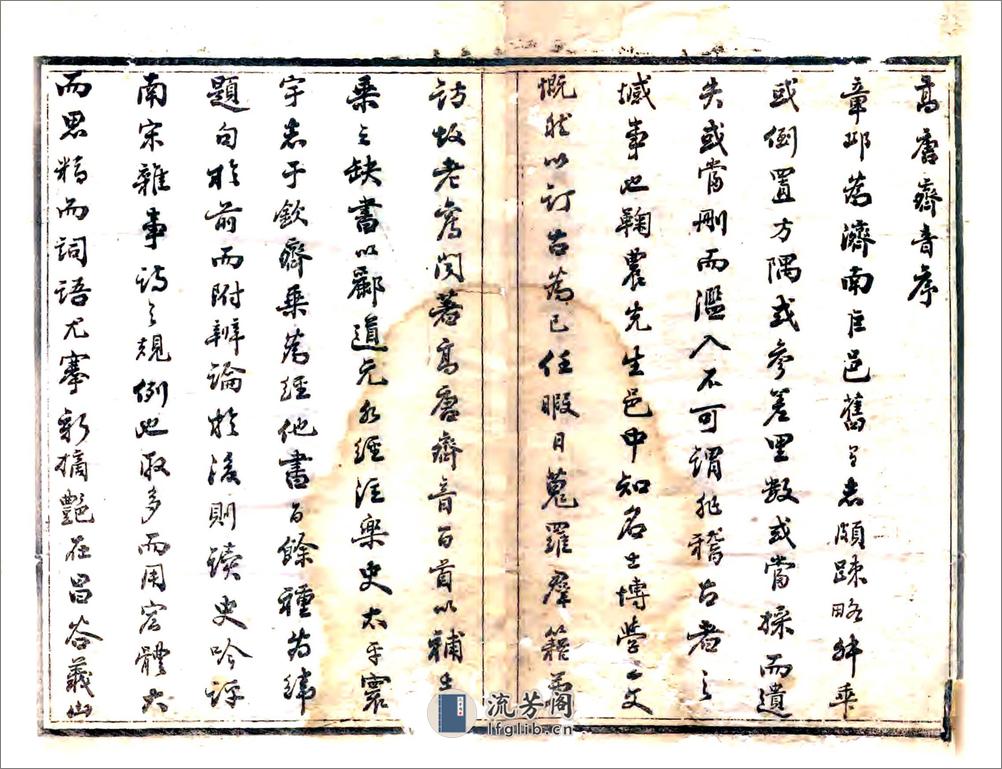 高唐齊音序
章邱為濟南巨邑舊有志頗疎略舛乖
或倒置方隅或參差里數或當採而遺
失或當刪而濫入不可謂非稽古者之
憾事也鞠農先生邑中知名士博學工文
慨然以訂古為己任暇日蒐羅羣籍
訪故老舊聞著高唐齊音百首以補土
乘之缺書以酈道元水經注樂史太平寰
宇志于欽齊乘為經他書百餘種為緯
題句於前而附辨論於後則讀史吟評
南宋雜事詩之規例也取多而用宏體大
而思精而詞語尤搴新摘艷在昌谷義山
流芳阁
lfglib.cn